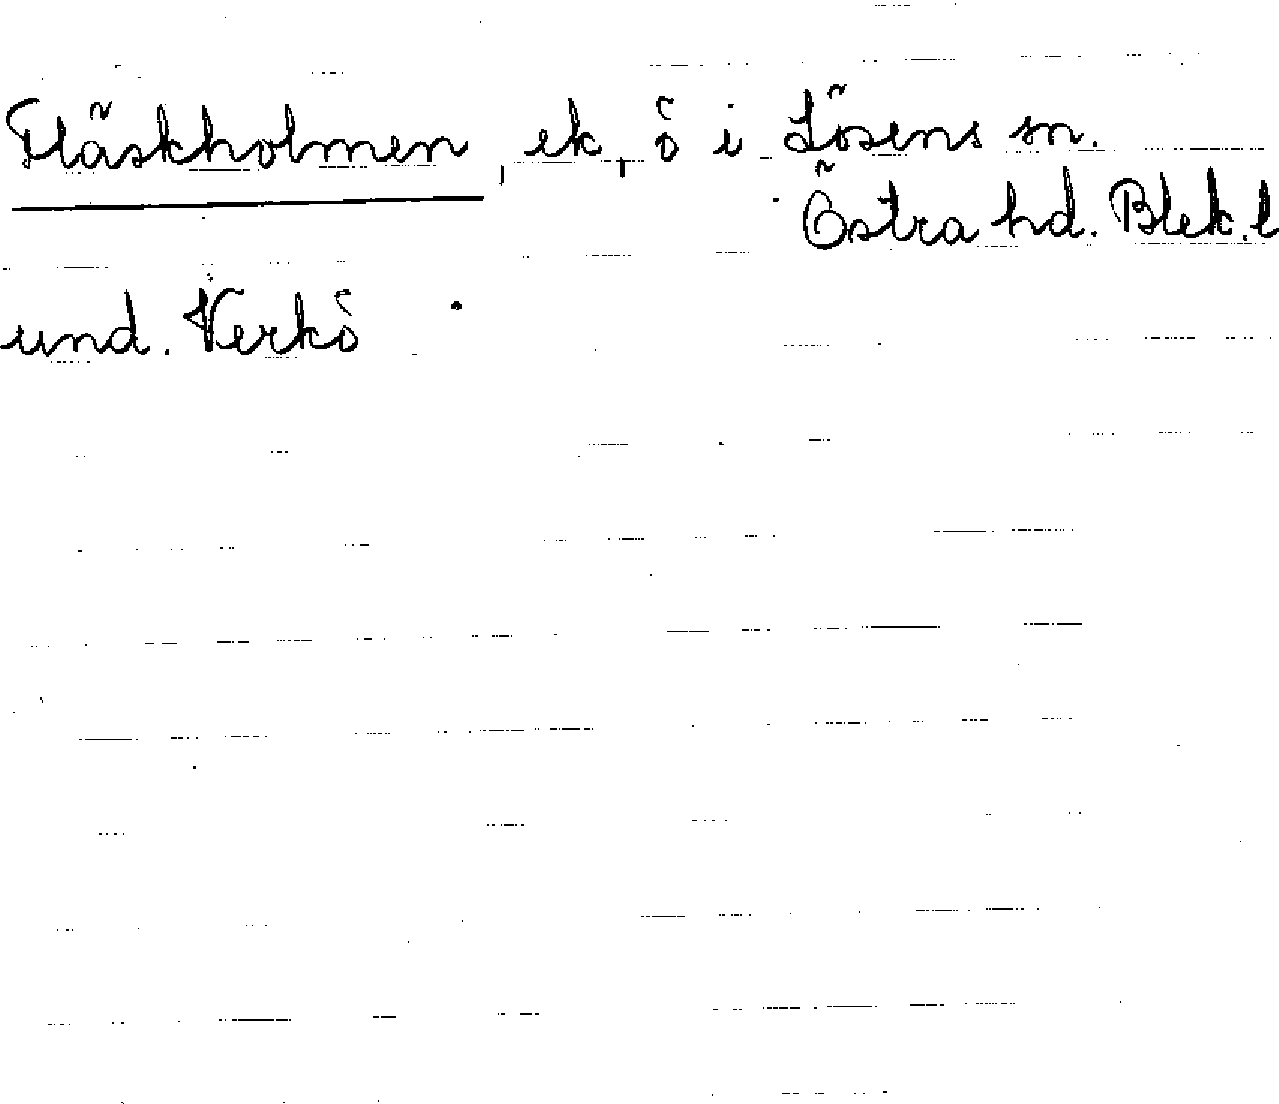 Fläskholmen, ek, ö i Lösens sn.
Östra hd. Blek. l
und. Verkö